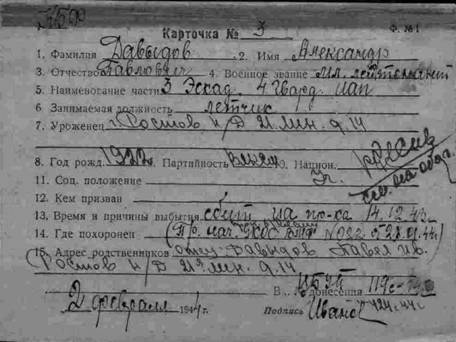 Карточка № 3
Ф. №1
1. Фамилия Давыдов 2. Имя Александр
3. Отчество Павлович 4. Военное звание мл. лейтенант
5. Наименование части 3 Эскад. 4 Гвард. иап
6. Занимаемая должность летчик
7. Уроженец г. Ростов н/Д 21 лин. д. 14
8. Год рожд. 1922 Партийность Национ.
11. Соц. положение
12. Кем призван
13. Время и причины выбытия сбит 14.12.43
14. Где похоронен
15. Адрес родственников отец - Давыдов Павел Ив.
Ростов н/Д 21 лин. д. 14
В донесения
2 февраля 1944 г.
Подпись